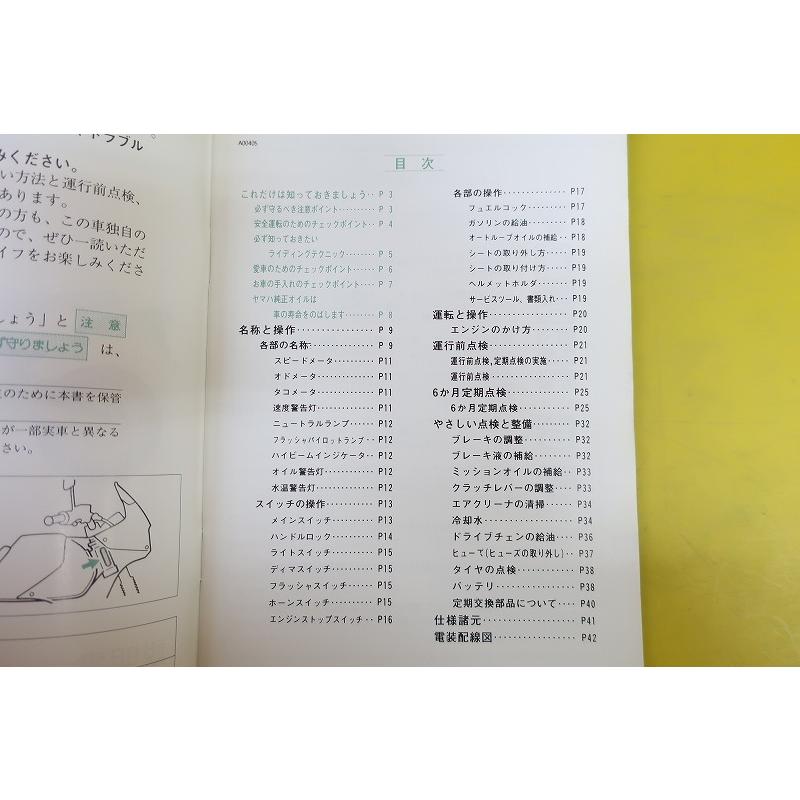 。
トラブル
みください。
い方法と運行前点検、
あります。
の方も、この車独自の
ので、ぜひ一読いただ
イフをお楽しみくださ
しょう」と 注 意
ず守りましょう は、
のために本書を保管
が一部実車と異なる
さい。
A00405
目 次
これだけは知っておきましょう‥P 3
必ず守るべき注意ポイント‥‥‥‥‥P 3
安全運転のためのチェックポイント‥‥P 4
必ず知っておきたい
ライディングテクニック‥‥‥P 5
愛車のためのチェックポイント‥‥‥P 6
お車の手入れのチェックポイント‥‥P 7
ヤマハ純正オイルは
車の寿命をのばします‥‥‥P 8
名称と操作‥‥‥‥‥‥‥P 9
各部の名称‥‥‥‥‥‥P 9
スピードメータ‥‥‥‥‥P11
オドメータ‥‥‥‥‥‥P11
タコメータ‥‥‥‥‥‥P11
速度警告灯‥‥‥‥‥‥P11
ニュートラルランプ‥‥‥P12
フラッシャパイロットランプ‥‥P12
ハイビームインジケータ‥‥P12
オイル警告灯‥‥‥‥‥P12
水温警告灯‥‥‥‥‥‥P12
スイッチの操作‥‥‥‥‥P13
メインスイッチ‥‥‥‥‥P13
ハンドルロック‥‥‥‥‥P14
ライトスイッチ‥‥‥‥‥P15
ディマスイッチ‥‥‥‥‥P15
フラッシャスイッチ‥‥‥P15
ホーンスイッチ‥‥‥‥‥P15
エンジンストップスイッチ‥P16
各部の操作‥‥‥‥‥‥‥P17
フュエルコック‥‥‥‥‥P17
ガソリンの給油‥‥‥‥‥P18
オートルーブオイルの補給‥‥P18
シートの取り外し方‥‥‥P19
シートの取り付け方‥‥‥P19
ヘルメットホルダ‥‥‥‥P19
サービスツール、書類入れ‥‥P19
運転と操作‥‥‥‥‥‥‥P20
エンジンのかけ方‥‥‥‥P20
運行前点検‥‥‥‥‥‥‥P21
運行前点検,定期点検の実施‥‥‥P21
運行前点検‥‥‥‥‥‥‥P21
6か月定期点検‥‥‥‥‥P25
6か月定期点検‥‥‥‥‥P25
やさしい点検と整備‥‥‥P32
ブレーキの調整‥‥‥‥‥P32
ブレーキ液の補給‥‥‥‥P32
ミッションオイルの補給‥P33
クラッチレバーの調整‥‥P33
エアクリーナの清掃‥‥‥P34
冷却水‥‥‥‥‥‥‥‥‥P34
ドライブチェンの給油‥‥P36
ヒューズ(ヒューズの取り外し)‥P37
タイヤの点検‥‥‥‥‥‥P38
バッテリ‥‥‥‥‥‥‥‥P38
定期交換部品について‥‥P40
仕様諸元‥‥‥‥‥‥‥‥P41
電装配線図‥‥‥‥‥‥‥P42